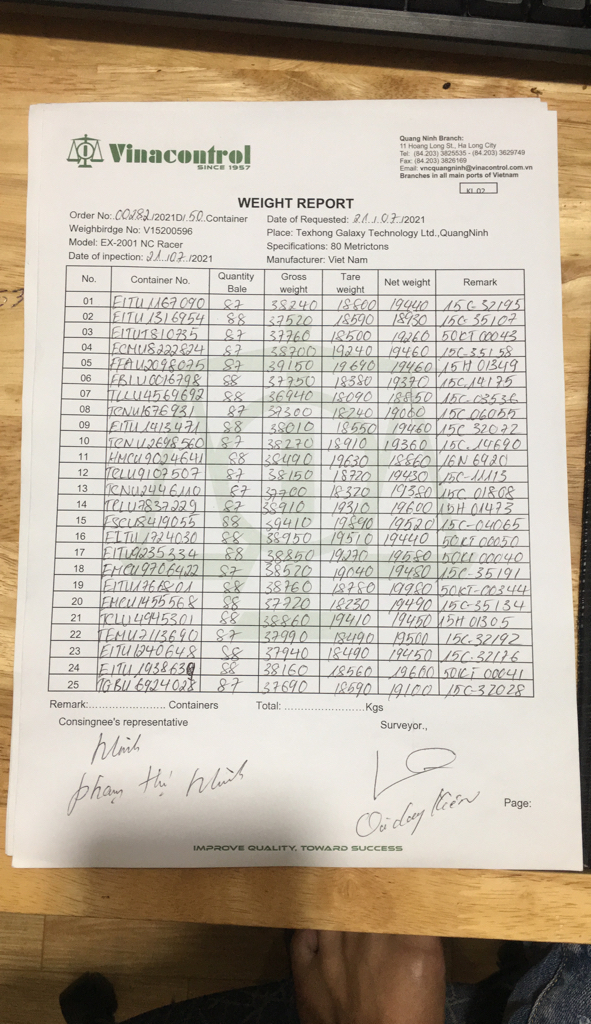 Vinacontrol
SINCE 1957
Quang Ninh Branch:
11 Hoang Long St., Ha Long City
Tel: (84.203) 3825535 - (84.203) 3629749
Fax: (84.203) 3826169
Email: vncquangninh@vinacontrol.com.vn
Branches in all main ports of Vietnam
KL 02
WEIGHT REPORT
Order No: C0282/2021D/.50.Container
Date of Requested: 21./.07./2021
Weighbirdge No: V15200596
Place: Texhong Galaxy Technology Ltd.,QuangNinh
Model: EX-2001 NC Racer
Specifications: 80 Metrictons
Date of inpection: 21./07./2021
Manufacturer: Viet Nam
No. Container No. Quantity Bale Gross weight Tare weight Net weight Remark
01 EITU 1167090 87 38240 18800 19440 15C-32195
02 EITU 1316954 88 37520 18590 18930 15C 35107
03 EITU 1810735 87 37760 18500 19260 50KT 00043
04 FCMU8222824 87 38700 19240 19460 15C-35158
05 FFAU2098075 87 39150 19690 19460 15H 01349
06 FBIU0016798 88 37750 18380 19370 15C.14175
07 TLLU4569692 88 36940 18090 18850 15C-03536
08 TCNU1676931 87 37300 18240 19060 15C 06055
09 EITU 1413471 88 38010 18550 19460 15C 32072
10 TCNU 2698560 87 38270 18910 19360 15C.14690
11 HMCU9024641 88 38490 19630 18860 16N 6920
12 TCLU9107507 87 38150 18720 19430 15C-1113
13 TCNU2446110 87 37700 18320 19380 15C 01808
14 TCLU7837229 87 38910 19310 19600 15H 01473
15 FSCU8419055 88 39410 19890 19520 15C-04065
16 EITU 1724030 88 38950 19510 19440 50KT 00050
17 EITU9235334 88 38850 19270 19580 50KT 00040
18 EMCU9706422 87 38520 19040 19480 15C-35191
19 EITU1761801 88 38760 18780 19980 50KT-00344
20 EMCU1455568 88 37720 18230 19490 15C-35134
21 TCLU4945301 88 38860 19410 19450 15H 01305
22 TEMU7113690 87 37990 18490 19500 15C-32192
23 EITU1240648 88 37940 18490 19450 15C-32176
24 EITU 1938639 88 38160 18560 19600 50KT 00041
25 TGBU 6924028 87 37690 18590 19100 15C-32028
Remark:........................ Containers Total: ........................Kgs
Consingnee's representative
Surveyor.,
Minh
phạm thị Minh
Page:
IMPROVE QUALITY, TOWARD SUCCESS